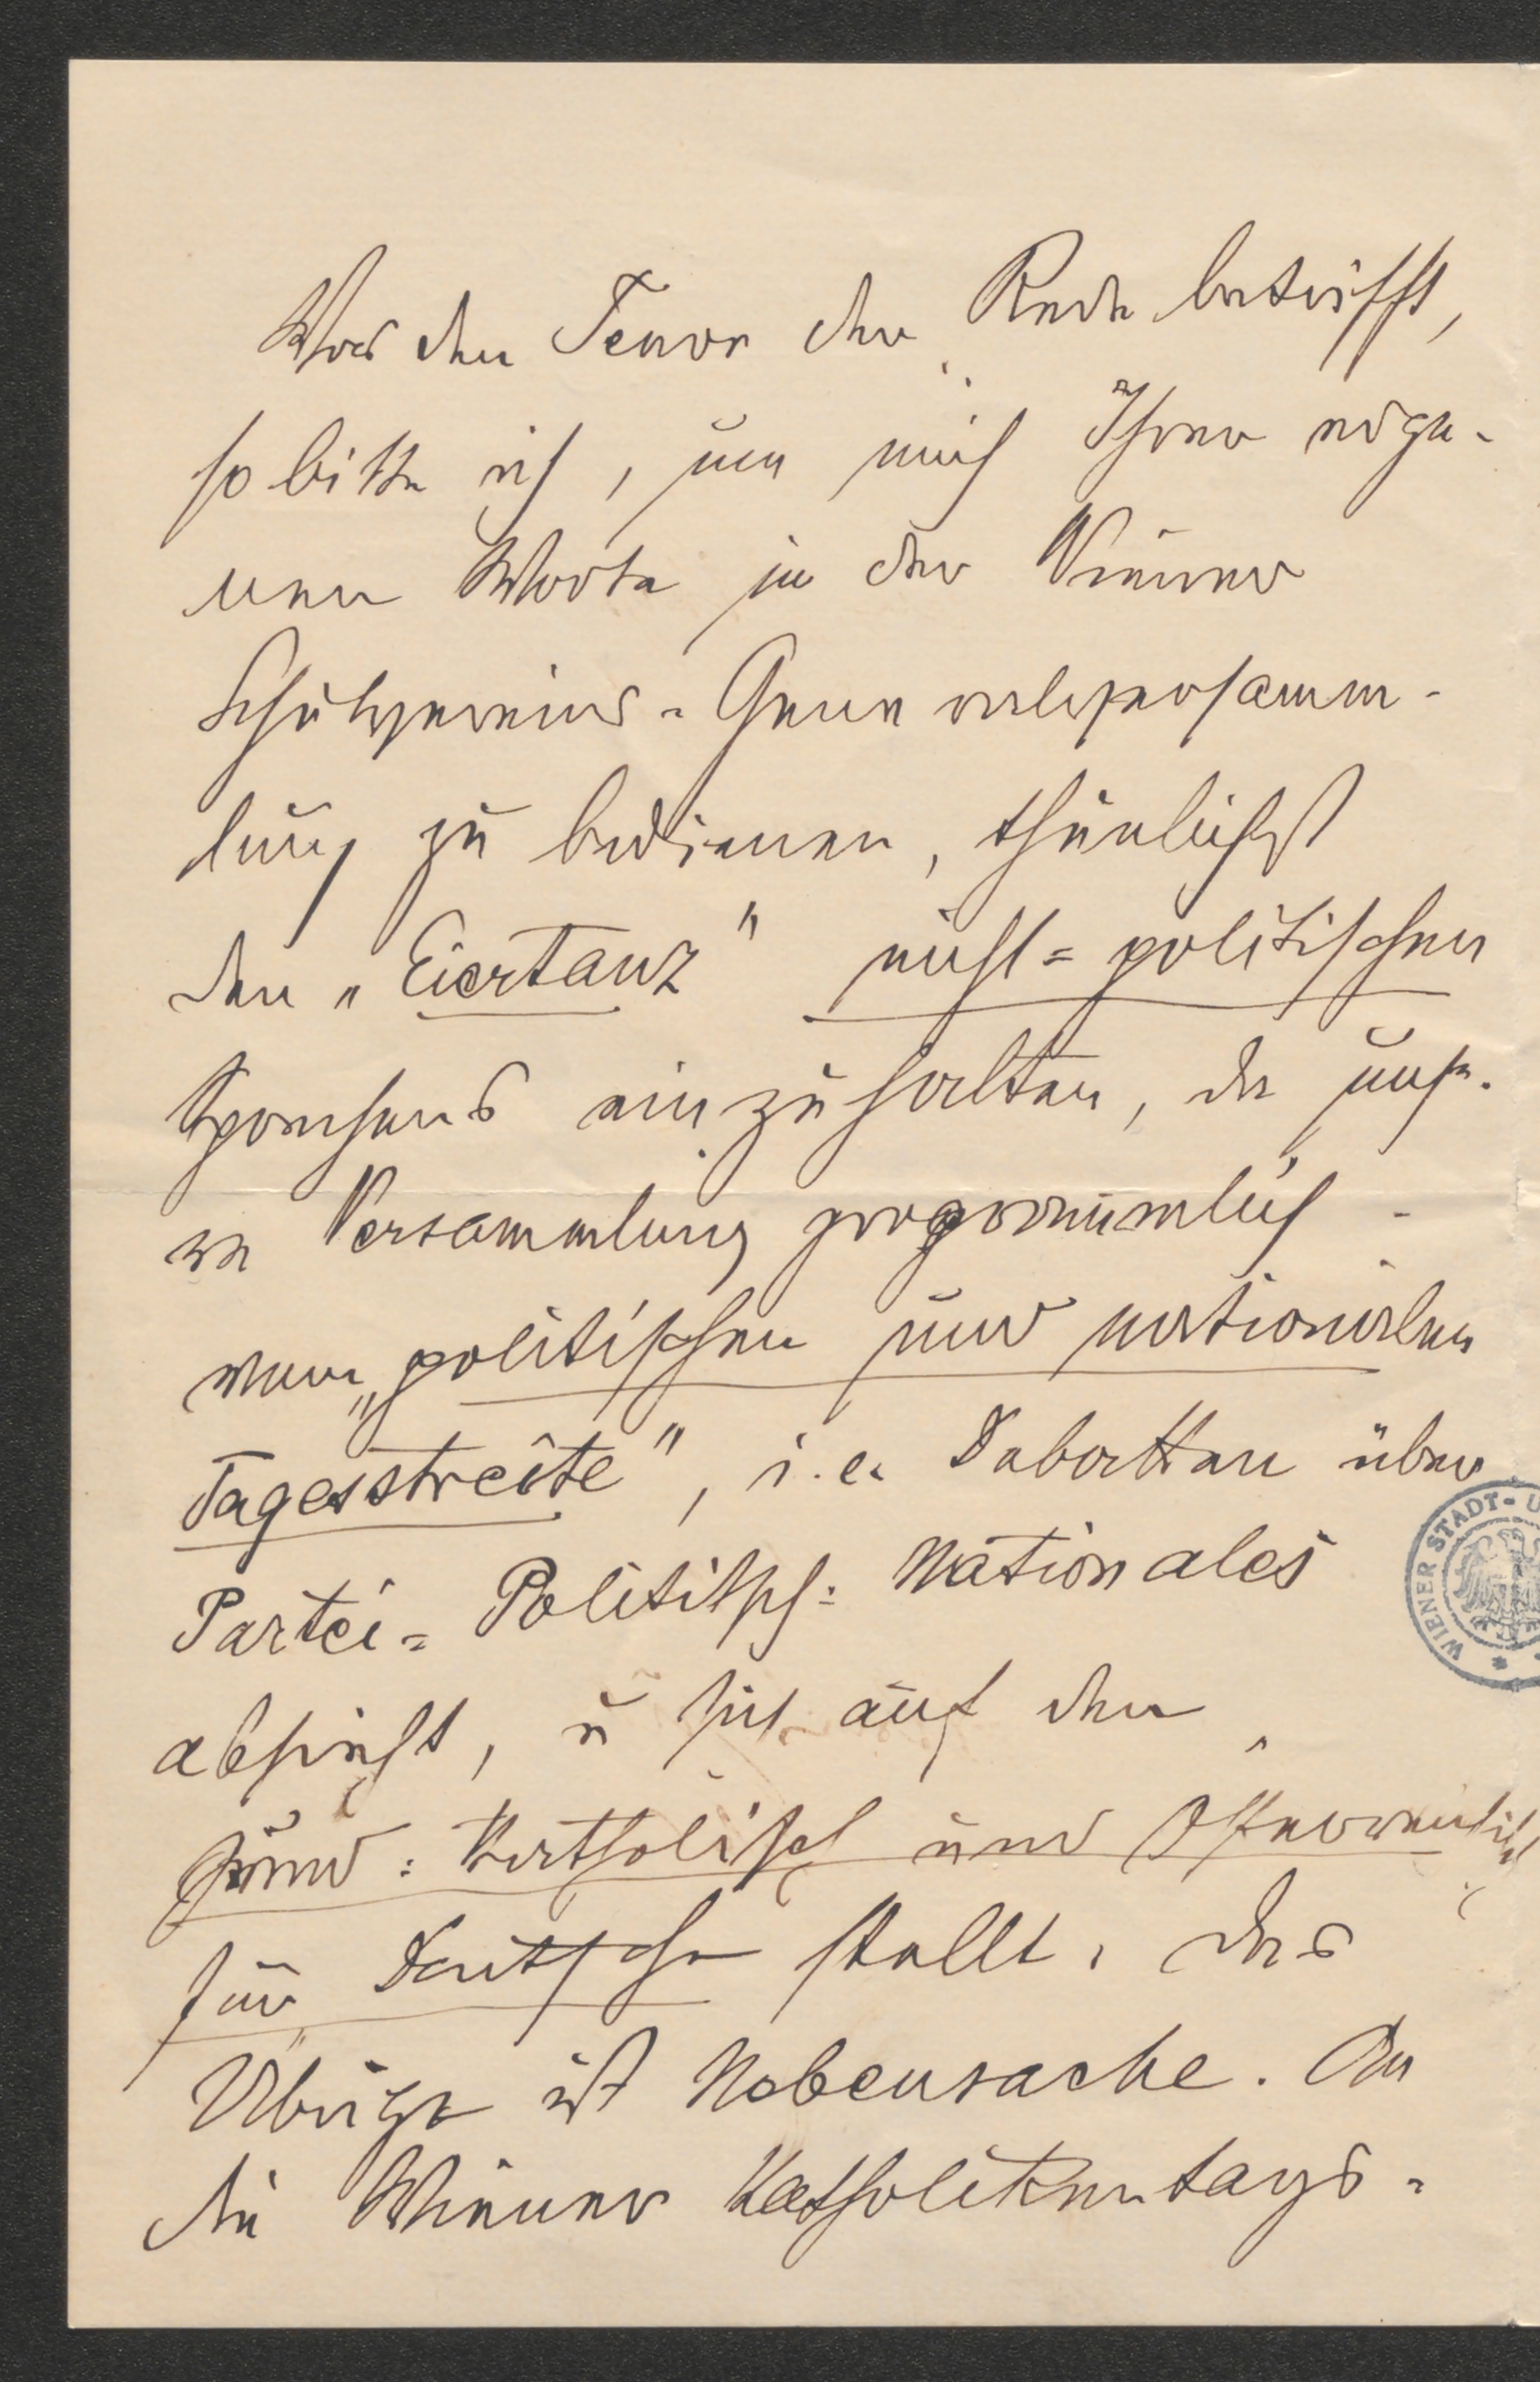 Was den Tenor der Rede betrifft,
so bitte ich, um mich Ihrer eige-
nen Worte in der Wiener
Schulvereins-Generalversamm-
lung zu bedienen, thunlichst
den „Eiertanz" nicht=politischen
Sprechens einzuhalten, da unse-
re Versammlung programmlich -
von „politischen und nationalen
Tagesstreite", i.e. Debatten über
Partei= Politisch= Nationales
absieht, u sich auf den
Grund: Katholisch und Österreichisch
für Deutsche stellt. Das
Übrige ist Nebensache. An
die Wiener Katholikentags=
WIENER STADT- U